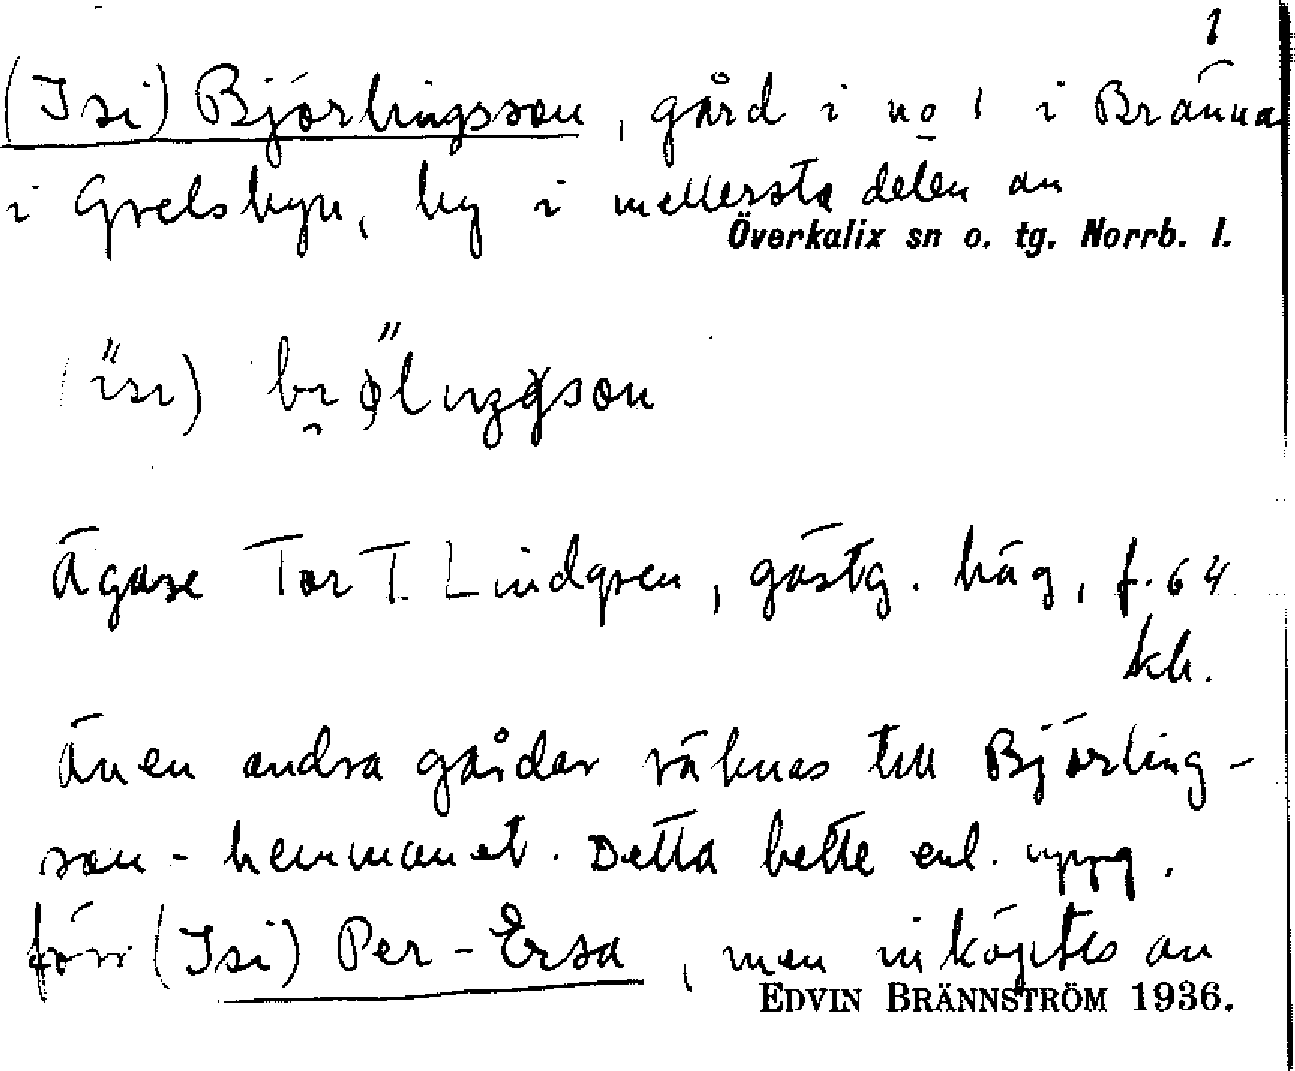 1
(Isi) Björlingsson, gård i no 1 i Bränna
i Grelsbyn, by i mellersta delen av
Överkalix sn o. tg. Norrb. l.
Ägare Tor T. Lindgren, gästg. häg, f. 64
kb.
Även andra gårdar räknas till Björling-
son-hemmanet. Detta hette enl. uppg.
förr (Isi) Per-Ersa, men inköptes av
EDVIN BRÄNNSTRÖM 1936.